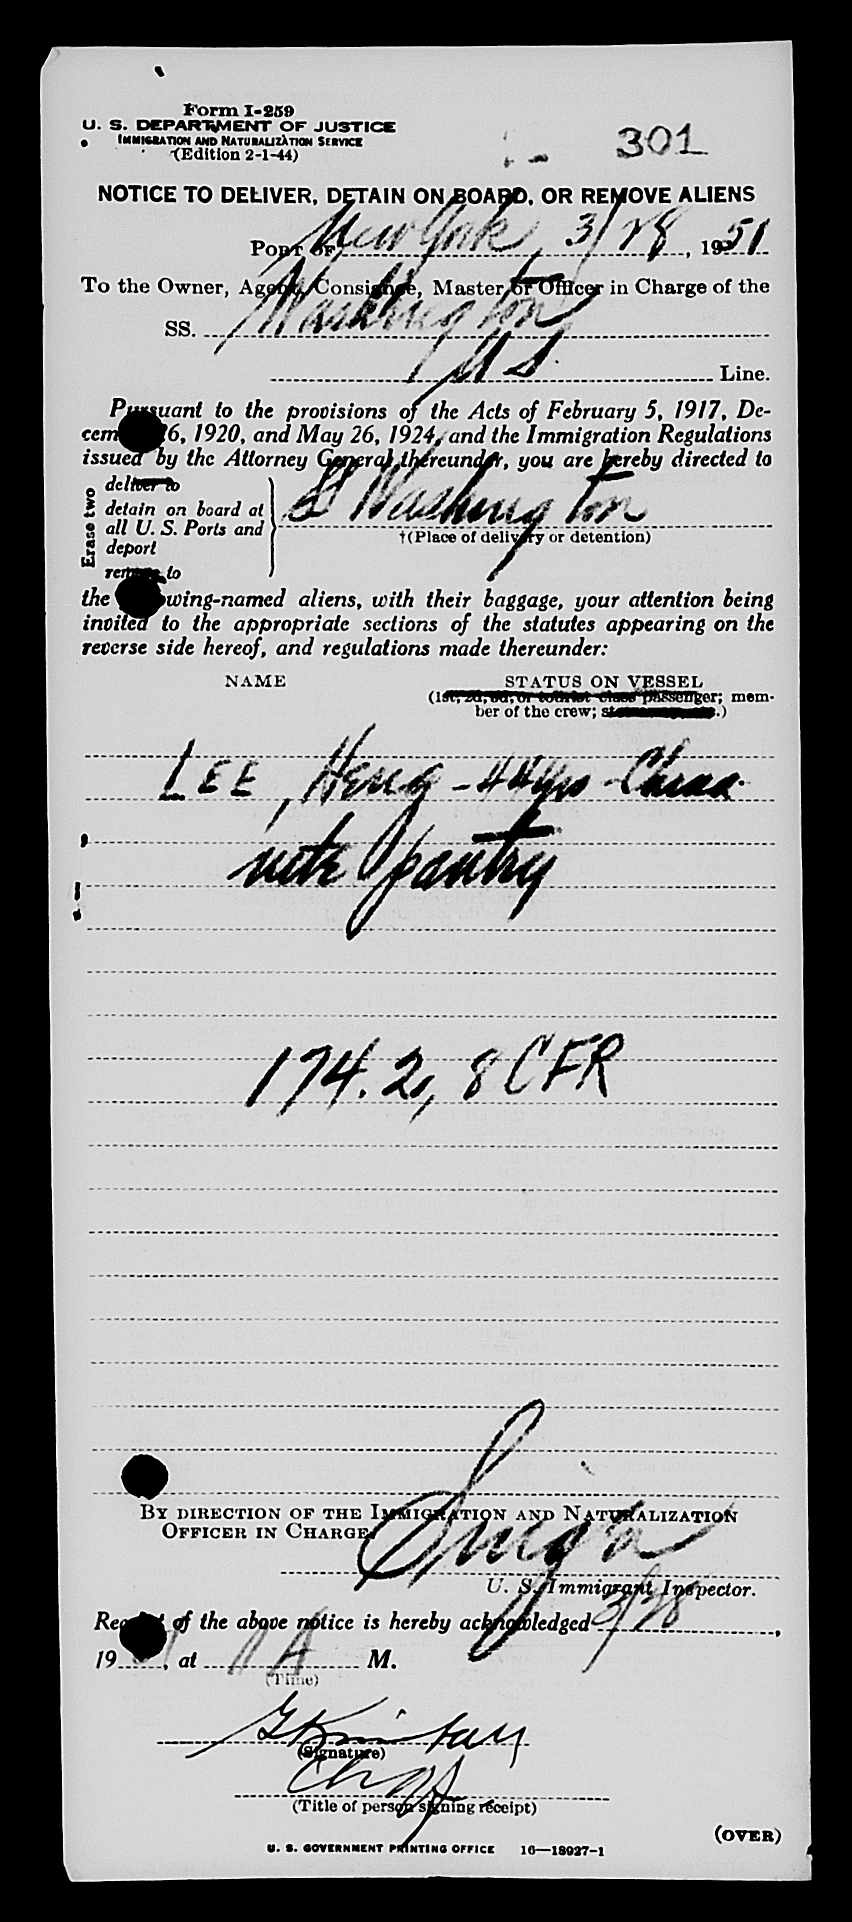 Form I-259
U. S. DEPARTMENT OF JUSTICE
IMMIGRATION AND NATURALIZATION SERVICE
(Edition 2-1-44)
301
NOTICE TO DELIVER, DETAIN ON BOARD, OR REMOVE ALIENS
PORT OF New York, 3/28, 1951
To the Owner, Agent, Consignee, Master or Officer in Charge of the
SS. Washington
US Line.
Pursuant to the provisions of the Acts of February 5, 1917, De-
cem 26, 1920, and May 26, 1924, and the Immigration Regulations
issued by the Attorney General thereunder, you are hereby directed to
Erase two
deliver to
detain on board at
all U. S. Ports and
deport
remove to
SS Washington
†(Place of delivery or detention)
the wing-named aliens, with their baggage, your attention being
invited to the appropriate sections of the statutes appearing on the
reverse side hereof, and regulations made thereunder:
NAME STATUS ON VESSEL
(1st, 2d, 3d, or tourist class passenger; mem-
ber of the crew; .)
LEE, Heng - 44 yrs - China
nite pantry
174.2, 8 CFR
BY DIRECTION OF THE IMMIGRATION AND NATURALIZATION
OFFICER IN CHARGE.
U. S. Immigrant Inspector.
Receipt of the above notice is hereby acknowledged 3/28,
19 , at 11 A M.
(Time)
(Signature)
(Title of person signing receipt)
(OVER)
U. S. GOVERNMENT PRINTING OFFICE 16—18927-1